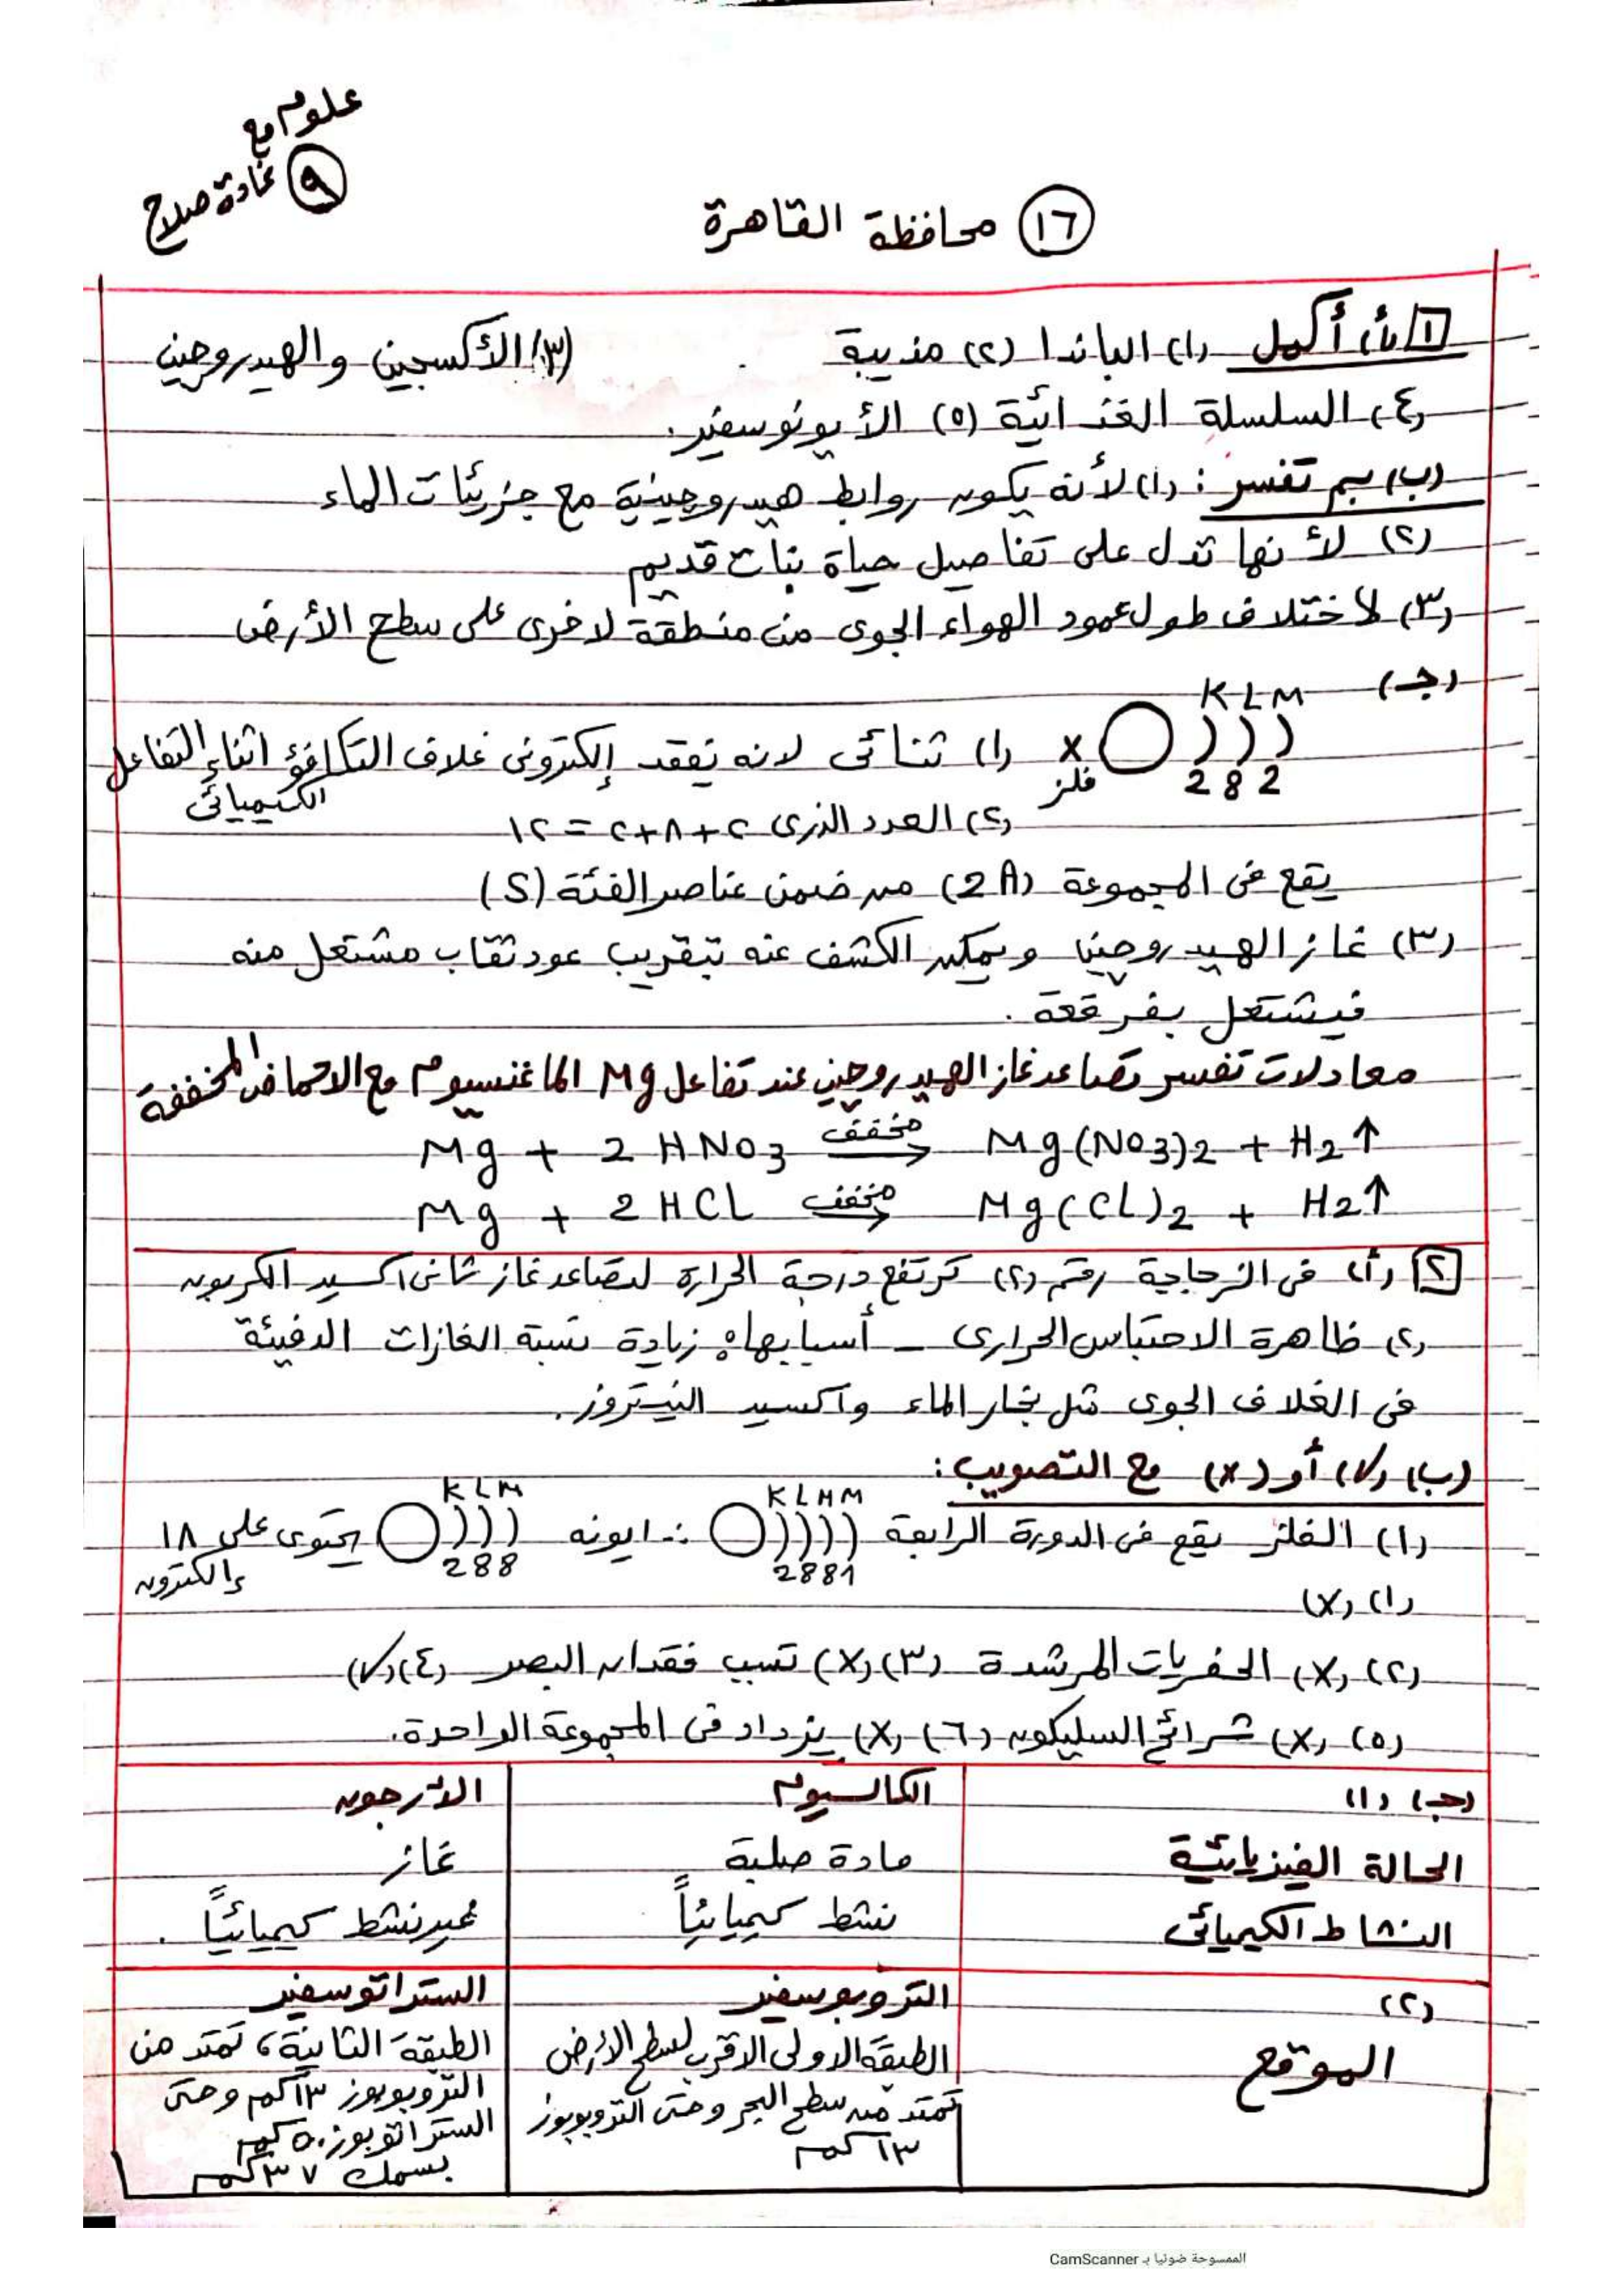 علوم مع
٩ غادة صلاح
١٦ محافظة القاهرة
١ (أ) أكمل (١) الباندا (٢) مذيبة (٣) الأكسجين والهيدروجين
(٤) السلسلة الغذائية (٥) الأيونوسفير.
(ب) بم تفسر: (١) لأنه يكون روابط هيدروجينية مع جزيئات الماء
(٢) لأنها تدل على تفاصيل حياة نبات قديم
(٣) لاختلاف طول عمود الهواء الجوى من منطقة لاخرى على سطح الأرض
(جـ) K L M
X فلز 2 8 2 (١) ثنائى لانه يفقد إلكترونى غلاف التكافؤ اثناء التفاعل الكيميائى
(٢) العدد الذرى ٢+٨+٢ = ١٢
يقع فى المجموعة (2A) من ضمن عناصر الفئة (S)
(٣) غاز الهيدروجين ويمكن الكشف عنه بتقريب عود ثقاب مشتعل منه
فيشتعل بفرقعة.
معادلات تفسر تصاعد غاز الهيدروجين عند تفاعل Mg الماغنسيوم مع الاحماض المخففة
Mg + 2 HNO3 مخفف → Mg(NO3)2 + H2↑
Mg + 2 HCL مخفف → Mg(CL)2 + H2↑
٢ (أ) فى الزجاجة رقم (٢) ترتفع درجة الحرارة لتصاعد غاز ثانى اكسيد الكربون
(٢) ظاهرة الاحتباس الحرارى - أسبابها: زيادة نسبة الغازات الدفيئة
فى الغلاف الجوى مثل بخار الماء واكسيد النيتروز.
(ب) (✓) أو (x) مع التصويب:
(١) الفلز يقع فى الدورة الرابعة K L M M 2 8 8 1 ∴ ايونه K L M 2 8 8 يحتوى على ١٨ إلكترون
(١) (X)
(٢) (X) الحفريات المرشدة (٣) (X) تسبب فقدان البصر (٤) (✓)
(٥) (X) شرائح السليكون (٦) (X) يزداد فى المجموعة الواحدة.
(جـ) (١) الكالسيوم الآرجون
الحالة الفيزيائية مادة صلبة غاز
النشاط الكيميائى نشط كيميائياً غير نشط كيميائياً.
(٢) التروبوسفير الستراتوسفير
الموقع الطبقة الاولى الاقرب لسطح الأرض الطبقة الثانية، تمتد من
تمتد من سطح البحر وحتى التروبوبوز التروبوبوز ١٣ كم وحتى
١٣ كم الستراتوبوز ٥٠ كم
بسمك ٣٧ كم
الممسوحة ضوئيا بـ CamScanner